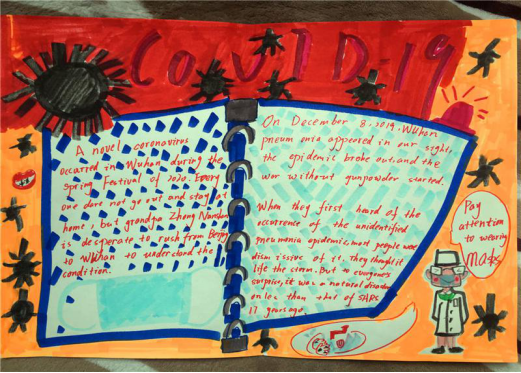 COVID-19
A novel coronavirus
occurred in Wuhan during the
Spring Festival of 2020. Every
one dare not go out and stay at
home, but grandpa Zhong Nanshan
is desperate to rush from Beijing
to Wuhan to understand the
condition.
On December 8, 2019. Wuhan
pneumonia appeared in our sight,
the epidemic broke out, and the
war without gunpowder started.
When they first heard of the
occurrence of the unidentified
pneumonia epidemic, most people were
dismissive of it. They thought it
life the storm. But to everyone's
surprise, it was a natural disaster
no less than that of SARS
17 years ago.
Pay
attention
to wearing
MARS